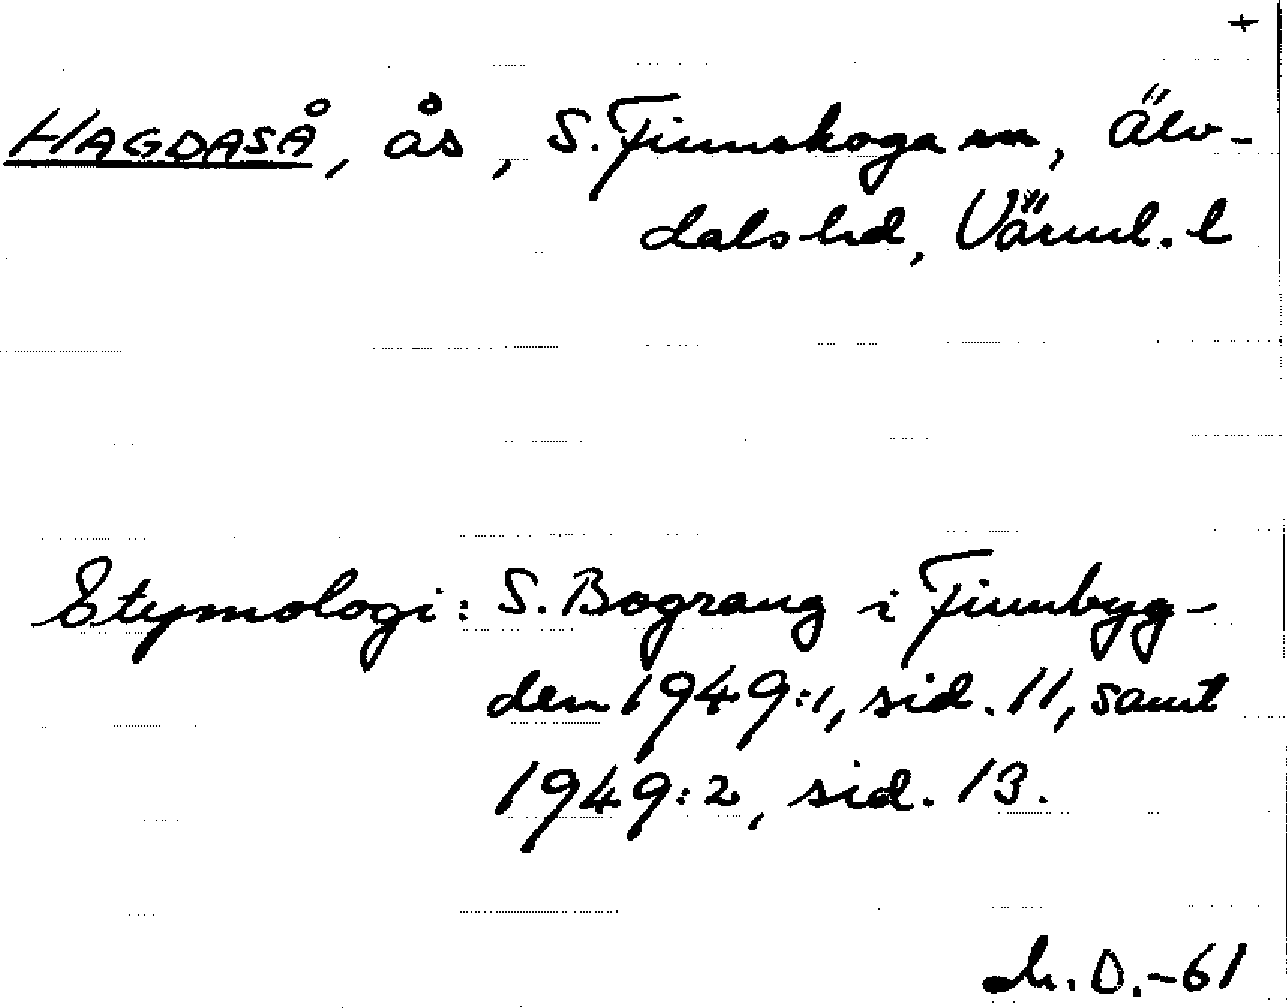 +
HAGDASÅ, ås, S. Finnskoga sn, Älv-
dals hd, Värml. l
Etymologi: S. Bograng i Finnbyg-
den 1949:1, sid. 11, samt
1949:2, sid. 13.
D.-61